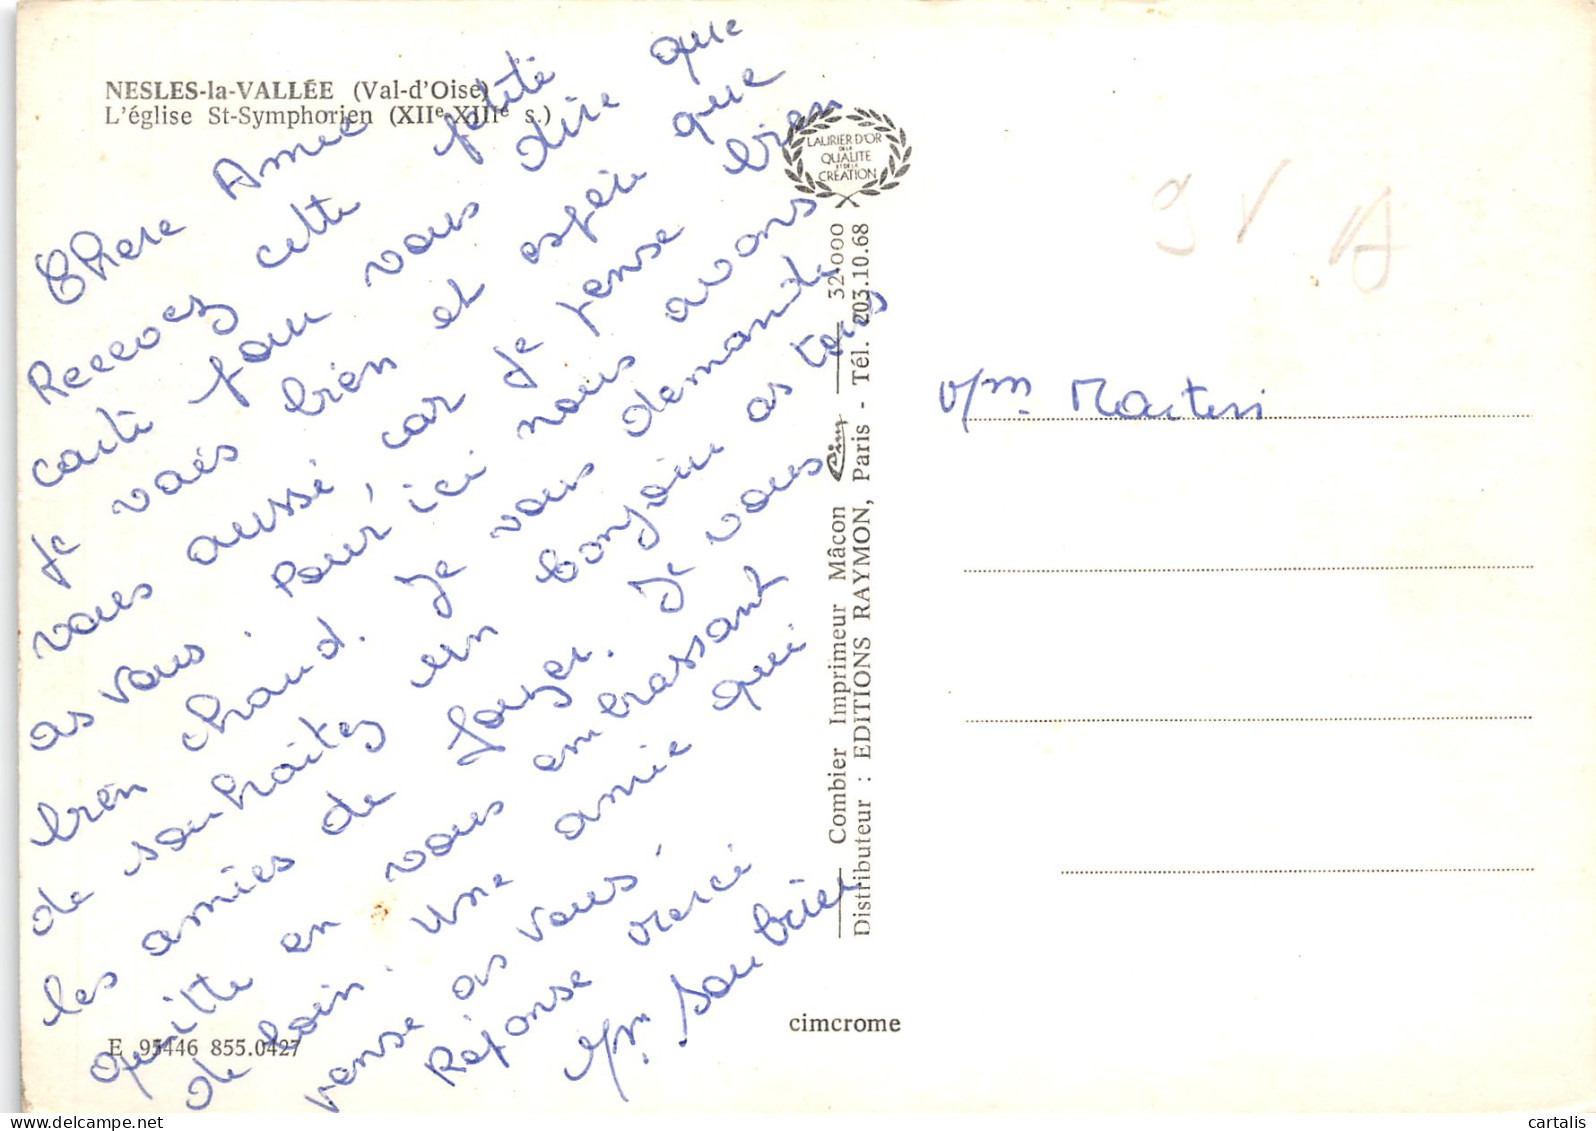 NESLES-la-VALLÉE (Val-d'Oise)
L'église St-Symphorien (XIIe-XIIIe s.)
Chere Amie
Recevez cette petite
carte pour vous dire que
Je vais bien et espère que
vous aussi, car Je pense bien
as vous. Pour ici nous avons
bien chaud. Je vous demande
de souhaitez un bonjour as tous
les amies de foyer. Je vous
quitte en vous embrassant
de loin. Une amie qui
pense as vous.
Réponse merci
Mm Soubrier
E 95446 855.0427
LAURIER D'OR
DE LA
QUALITE
ET DE LA
CRÉATION
Combier Imprimeur Mâcon Cim 32.000
Distributeur : EDITIONS RAYMON, Paris - Tél. 203.10.68
cimcrome
Mm Martin
cartalis